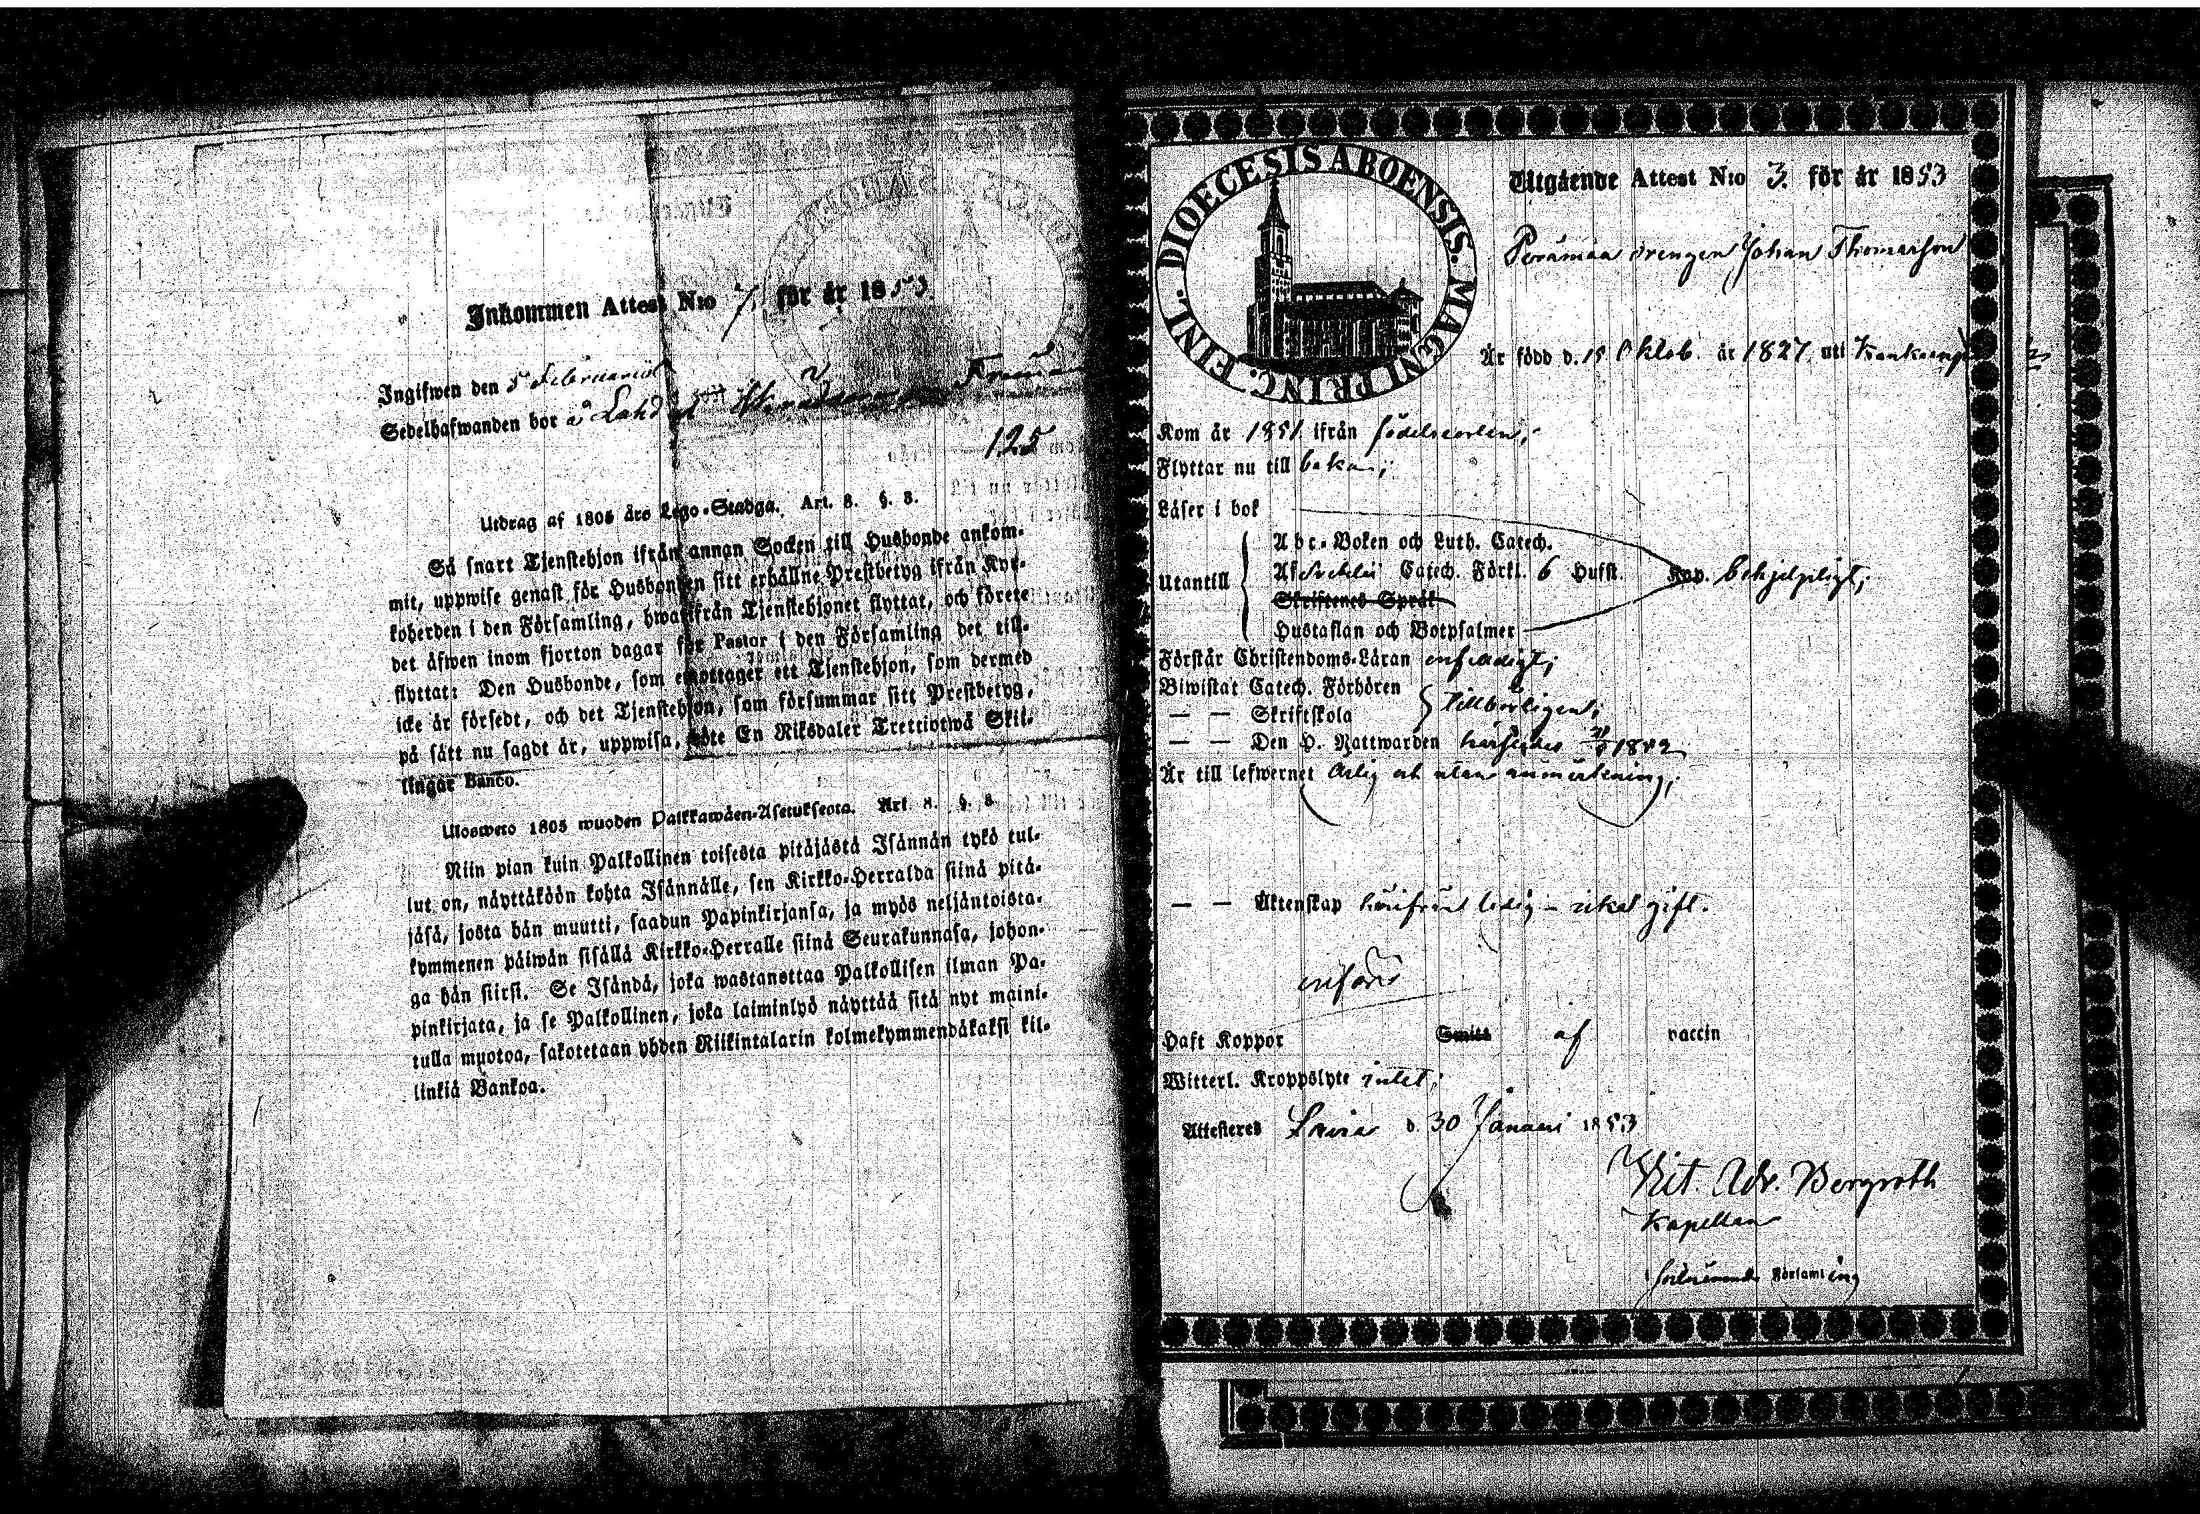 Inkommen Attest N:o 7 för år 1853
Ingifwen den 5 Februarii
Sedelhafwanden bor å
125
Utdrag af 1805 års Lego-Stadga. Art. 8. §. 8.
Så snart Tjenstehjon ifrån annan Socken till Husbonde ankom-
mit, uppwise genast för Husbonden sitt erhållne Prestbetyg ifrån Kyr-
koherden i den Församling, hwarifrån Tjenstehjonet flyttat, och förete
det äfwen inom fjorton dagar för Pastor i den Församling det till-
flyttat: Den Husbonde, som emottager ett Tjenstehjon, som dermed
icke är försedt, och det Tjenstehjon, som försummar sitt Prestbetyg,
på sätt nu sagdt är, uppwisa, böte En Riksdaler Trettiotwå Skil-
lingar Banco.
Ulosweto 1805 wuoden Palkkawäen-Asetuksesta. Art. 8. §. 8.
Niin pian kuin Palkollinen toisesta pitäjästä Isännän tykö tul-
lut on, näyttäköön kohta Isännälle, sen Kirkko-Herralda siinä pitä-
jäsä, josta hän muutti, saadun Papinkirjansa, ja myös neljäntoista-
kymmenen päiwän sisällä Kirkko-Herralle siinä Seurakunnasa, johon-
ga hän siirsi. Se Isändä, joka wastanottaa Palkollisen ilman Pa-
pinkirjata, ja se Palkollinen, joka laiminlyö näyttää sitä nyt maini-
tulla muotoa, sakotetaan yhden Riikintalarin kolmekymmendäkaksi kil-
linkiä Bankoa.
DIOECESIS ABOENSIS. MAGNI PRINC. FINL.
Utgående Attest N:o 3. för år 1853
Perämaa drengen Johan Thomasson
Är född d. 15 Oktob. år 1827, uti
Kom år 1851 ifrån födelseorten;
Flyttar nu till
Läser i bok
Utantill
Abc-Boken och Luth. Catech.
Af Svebilii Catech. Förkl. 6 Hufst. behjelpligt;
Skriftenes Språk
Hustaflan och Botpsalmer
Förstår Christendoms-Läran enfaldigt;
Biwistat Catech. Förhören
— — Skriftskola tillbörligen;
— — Den H. Nattwarden
Är till lefwernet ärlig och utan anmärkning;
— — Äktenskap härifrån ledig –
Haft Koppor Smitt af vaccin
Witterl. Kroppslyte intet;
Attesteres d. 30 Januari 1853
Vit. Adr. Bergroth
Kapellan
Församling